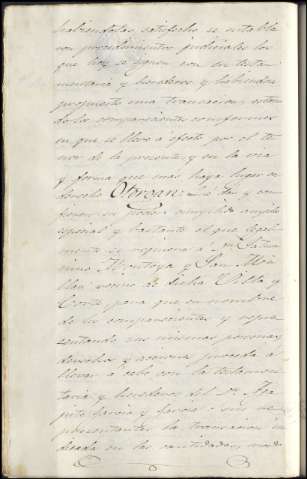 habiendolas satisfecho se entabla
ron procedimientos judiciales los
que hoy se siguen con su testa
mentaria y herederos y habiendose
propuesto una transacion, estan
do los comparecientes conformes
en que se lleve á efecto por el te
nor de la presente y en la via
y forma que mas haya lugar en
derecho Otorgan: Que dan y con
fieren su poder cumplido amplio
especial y bastante el que legal
mente se requiera á Dn
Montoya y Don
vecino de dicha Villa y
Corte para que en nombre
de los comparecientes y repre
sentando sus mismas personas
derechos y acciones proceda á
llevar á cabo con la testamen
taria y herederos del Sr.
pito Garcia y Garcia sus re
presentantes la transacion in
dicada en las cantidades, modo